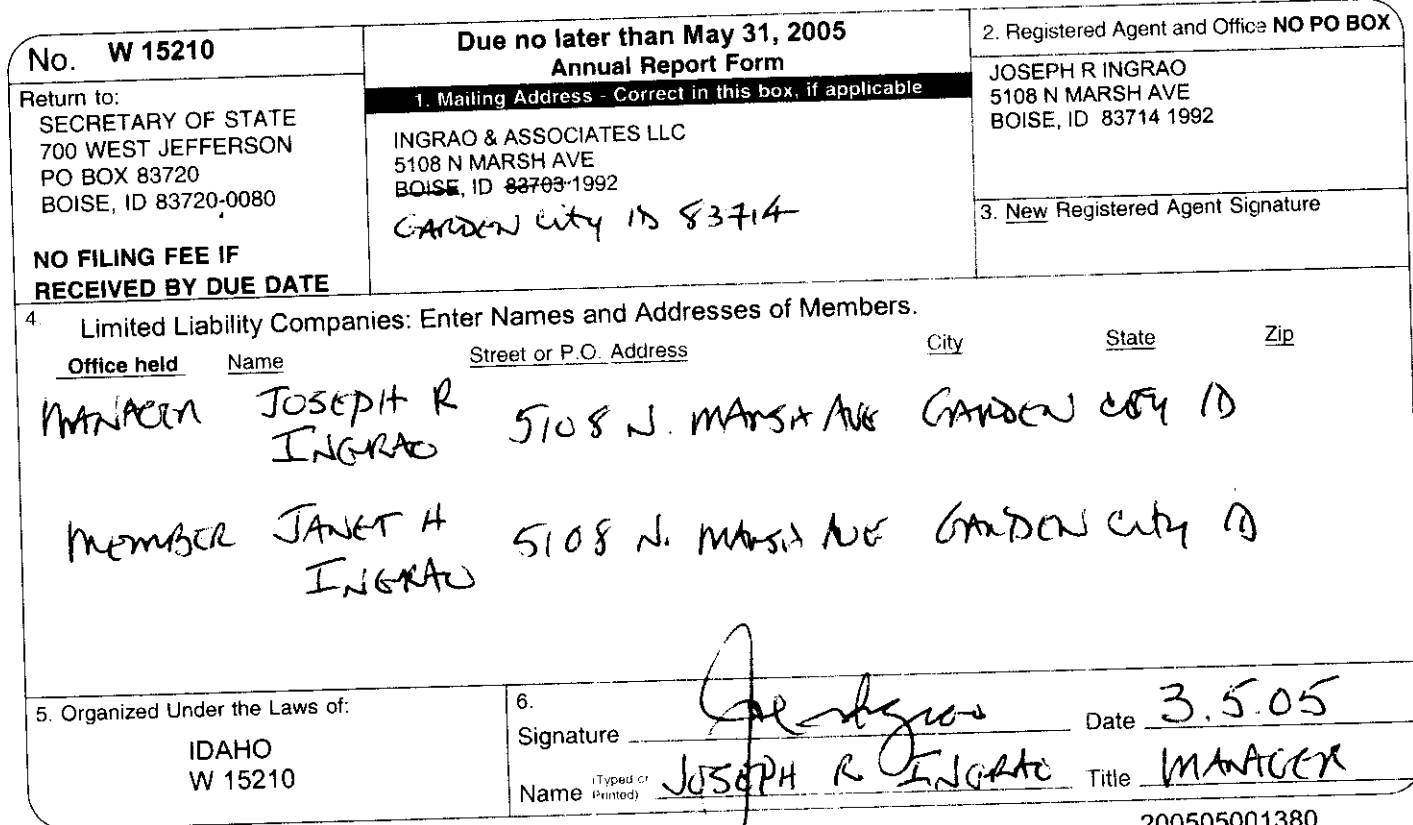 No. W 15210
Return to:
SECRETARY OF STATE
700 WEST JEFFERSON
PO BOX 83720
BOISE, ID 83720-0080
NO FILING FEE IF
RECEIVED BY DUE DATE
Due no later than May 31, 2005
Annual Report Form
1. Mailing Address - Correct in this box, if applicable
INGRAO & ASSOCIATES LLC
5108 N MARSH AVE
BOISE, ID 83703-1992
GARDEN City ID 83714
2. Registered Agent and Office NO PO BOX
JOSEPH R INGRAO
5108 N MARSH AVE
BOISE, ID 83714 1992
3. New Registered Agent Signature
4. Limited Liability Companies: Enter Names and Addresses of Members.
Office held Name Street or P.O. Address City State Zip
MANAGER JOSEPH R 5108 N. MARSH AVE GARDEN CITY ID
INGRAO
MEMBER JANET H 5108 N. MARSH AVE GARDEN City ID
INGRAO
5. Organized Under the Laws of:
IDAHO
W 15210
6.
Signature Joe Ingrao Date 3.5.05
Name (Typed or Printed) JOSEPH R INGRAO Title MANAGER
200505001380